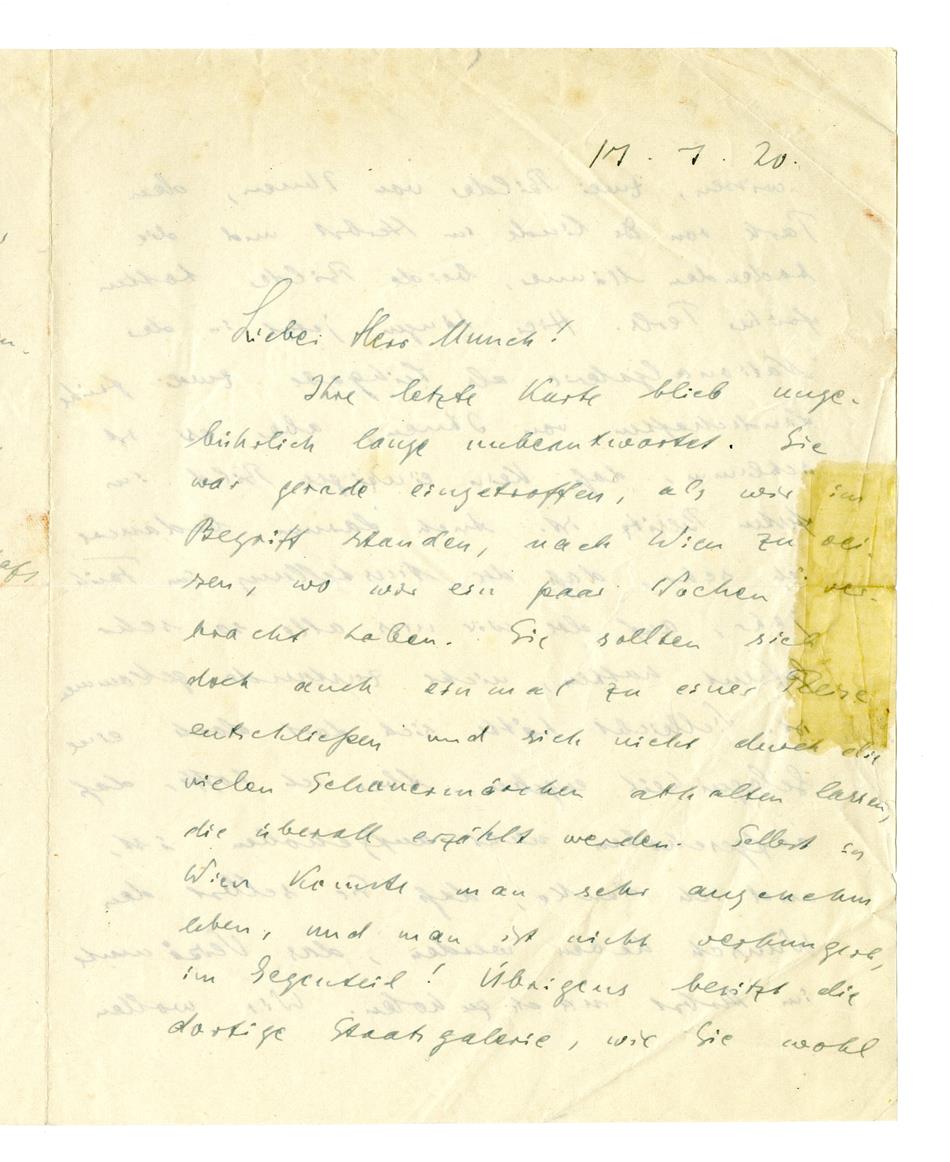 17. 7. 20.
Lieber Herr Munch!
Ihre letzte Karte blieb unge-
bührlich lange unbeantwortet. Sie
war gerade eingetroffen, als wir im
Begriff standen, nach Wien zu rei-
sen, wo wir ein paar Wochen ver-
bracht haben. Sie sollten sich
doch auch einmal zu einer Reise
entschließen und sich nicht durch die
vielen Schauermärchen abhalten lassen,
die überall erzählt werden. Selbst in
Wien konnte man sehr angenehm
leben, und man ist nicht verhungert,
im Gegenteil! Übrigens besitzt die
dortige Staatsgalerie, wie Sie wohl